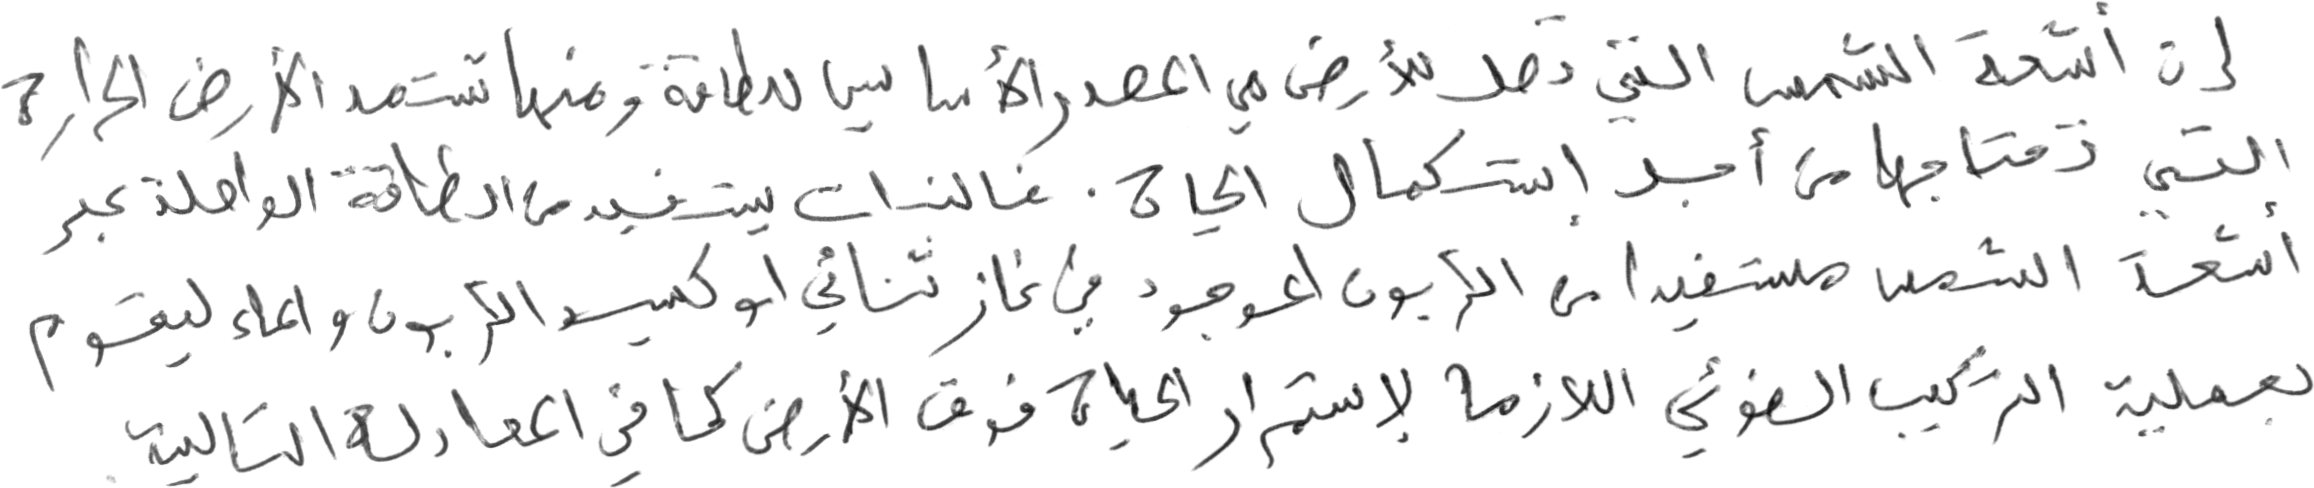 إن أشعة الشمس التي تصل للأرض هي المصدر الأساسي للطاقة ومنها تستمد الأرض الحرارة
التي تحتاجها من أجل إستكمال الحياة . فالنبات يستفيد من الطاقة الواصلة عبر
أشعة الشمس مستفيدا من الكربون الموجود في غاز ثنائي أوكسيد الكربون والماء ليقوم
بعملية التركيب الضوئي اللازمة لإستمرار الحياة فوق الأرض كما في المعادلة التالية .